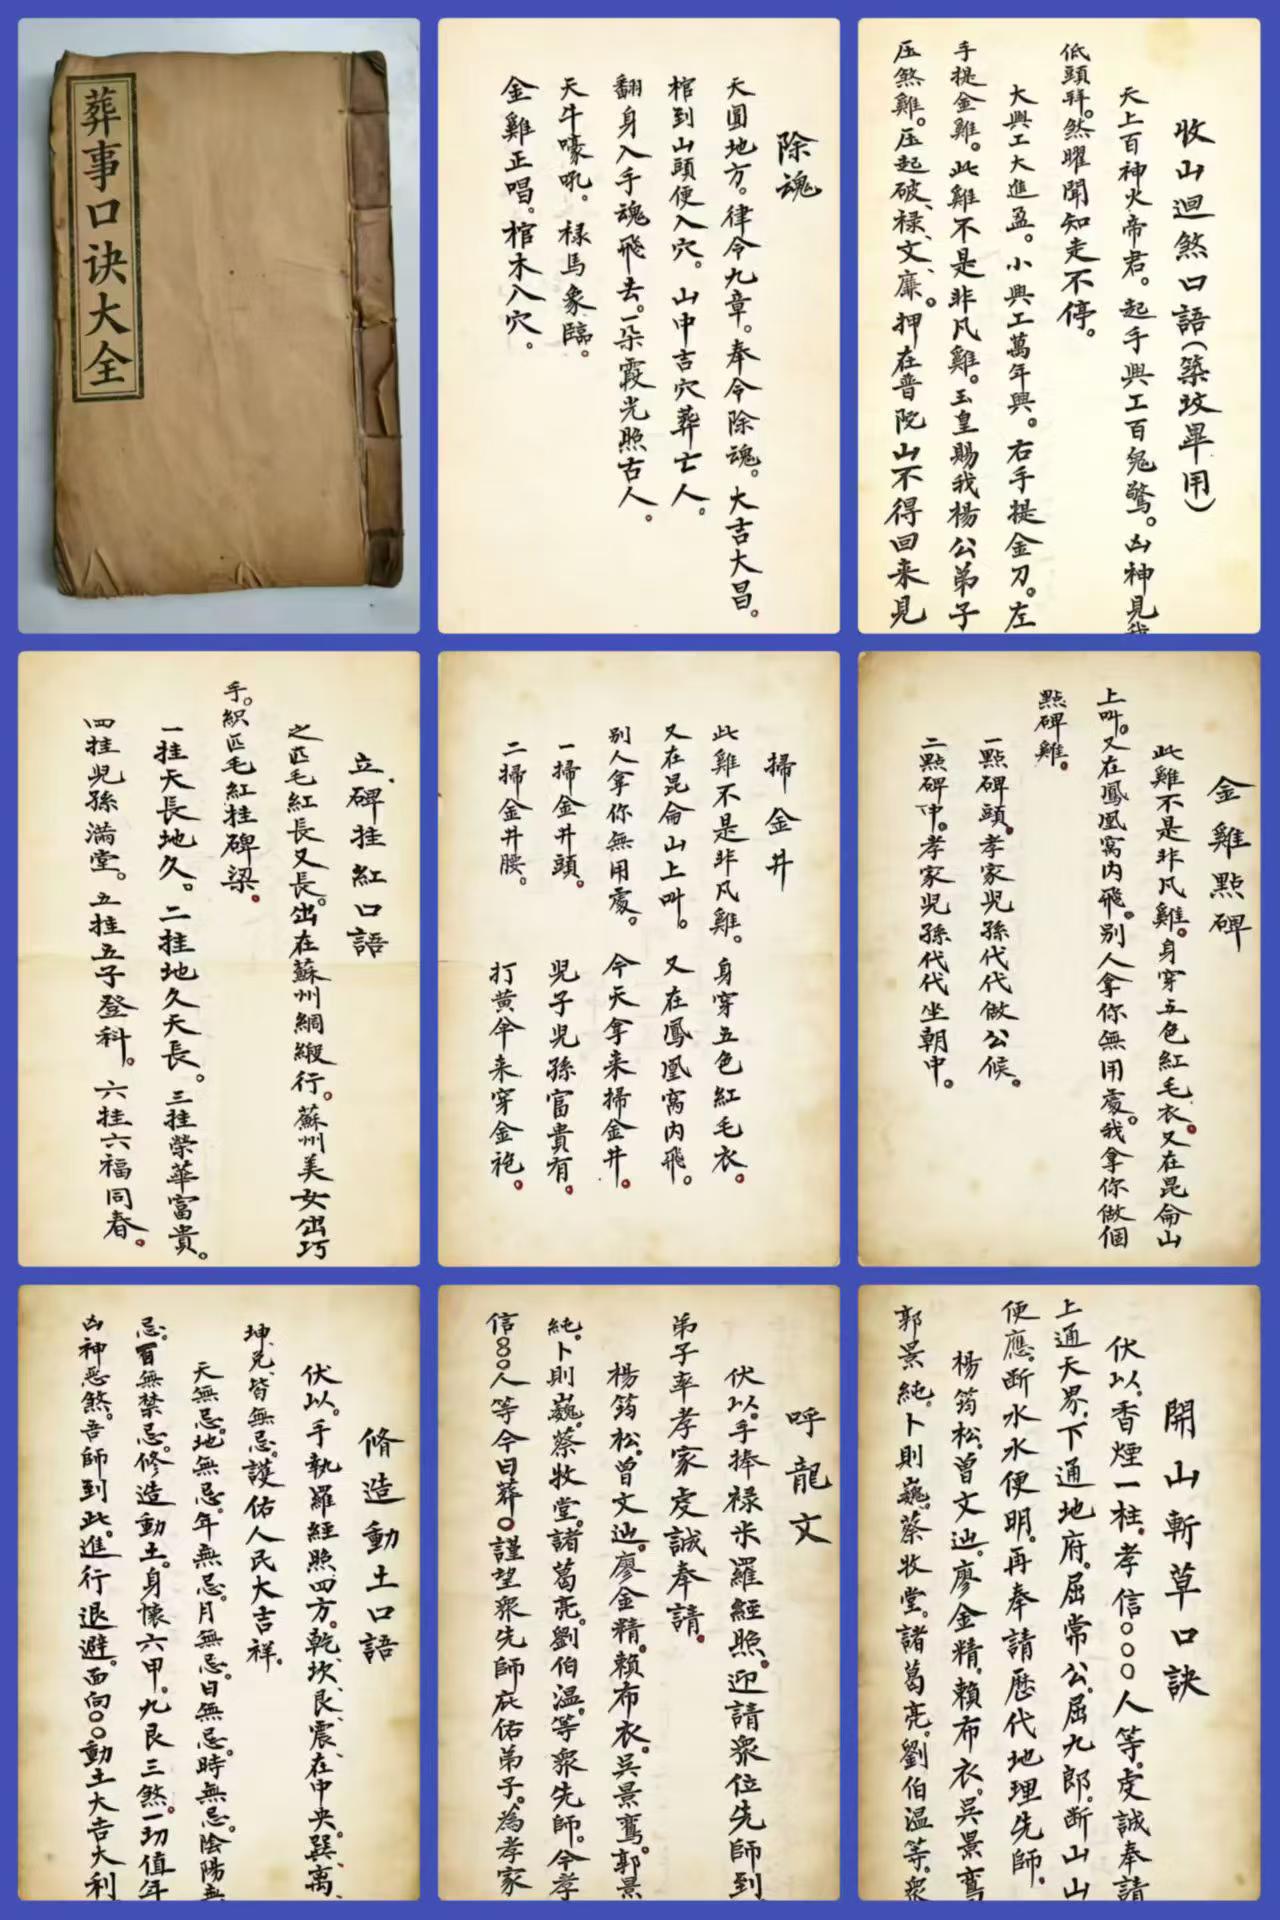 葬事口诀大全
除魂
天圓地方。律令九章。奉令除魂。大吉大昌。
棺到山頭便入穴。山中吉穴葬亡人。
翻身入手魂飛去。一朵霞光照古人。
天牛嚎吼。禄馬象臨。
金雞正唱。棺木入穴。
收山迴煞口語(築坟畢用)
天上百神火帝君。起手興工百鬼驚。凶神見我
低頭拜。煞曜聞知走不停。
大興工大進盈。小興工萬年興。右手提金刀。左
手提金雞。此雞不是非凡雞。玉皇賜我楊公弟子
压煞雞。压起破、禄、文、廉。押在普陀山不得回来見
立碑挂紅口語
之匹毛紅長又長。出在蘇州綢緞行。蘇州美女出巧
手。織匹毛紅挂碑梁。
一挂天長地久。二挂地久天長。三挂榮華富貴。
四挂兒孫滿堂。五挂五子登科。六挂六福同春。
掃金井
此雞不是非凡雞。身穿五色紅毛衣。
又在昆侖山上叫。又在鳳凰窩内飛。
别人拿你無用處。今天拿来掃金井。
一掃金井頭。兒子兒孫富貴有。
二掃金井腰。打黄伞来穿金袍。
金雞點碑
此雞不是非凡雞。身穿五色紅毛衣。又在昆侖山
上叫。又在鳳凰窩内飛。别人拿你無用處。我拿你做個
點碑雞。
一點碑頭。孝家兒孫代代做公候。
二點碑中。孝家兒孫代代坐朝中。
脩造動土口語
伏以。手執羅經照四方。乾、坎、艮、震、在中央。巽、离、
坤、兑、皆無忌。護佑人民大吉祥。
天無忌。地無忌。年無忌。月無忌。日無忌。時無忌。陰陽無
忌。百無禁忌。修造動土。身懷六甲。九良三煞。一切值年
凶神恶煞。吾師到此。進行退避。面向○○動土大吉大利
呼龍文
伏以。手捧禄米羅經照。迎請眾位先師到
弟子率孝家虔誠奉請。
楊筠松。曾文辿。廖金精。賴布衣。吳景鸾。郭景
純。卜則巍。蔡牧堂。諸葛亮。劉伯温。等眾先師。今孝
信○○○人等今日葬○謹望眾先師庇佑弟子。為孝家
開山斬草口訣
伏以。香煙一柱。孝信○○○人等。虔誠奉請
上通天界。下通地府。屈常公。屈九郎。断山山
便應。断水水便明。再奉請歷代地理先師。
楊筠松。曾文辿。廖金精。賴布衣。吳景鸾
郭景純。卜則巍。蔡牧堂。諸葛亮。劉伯温等。眾